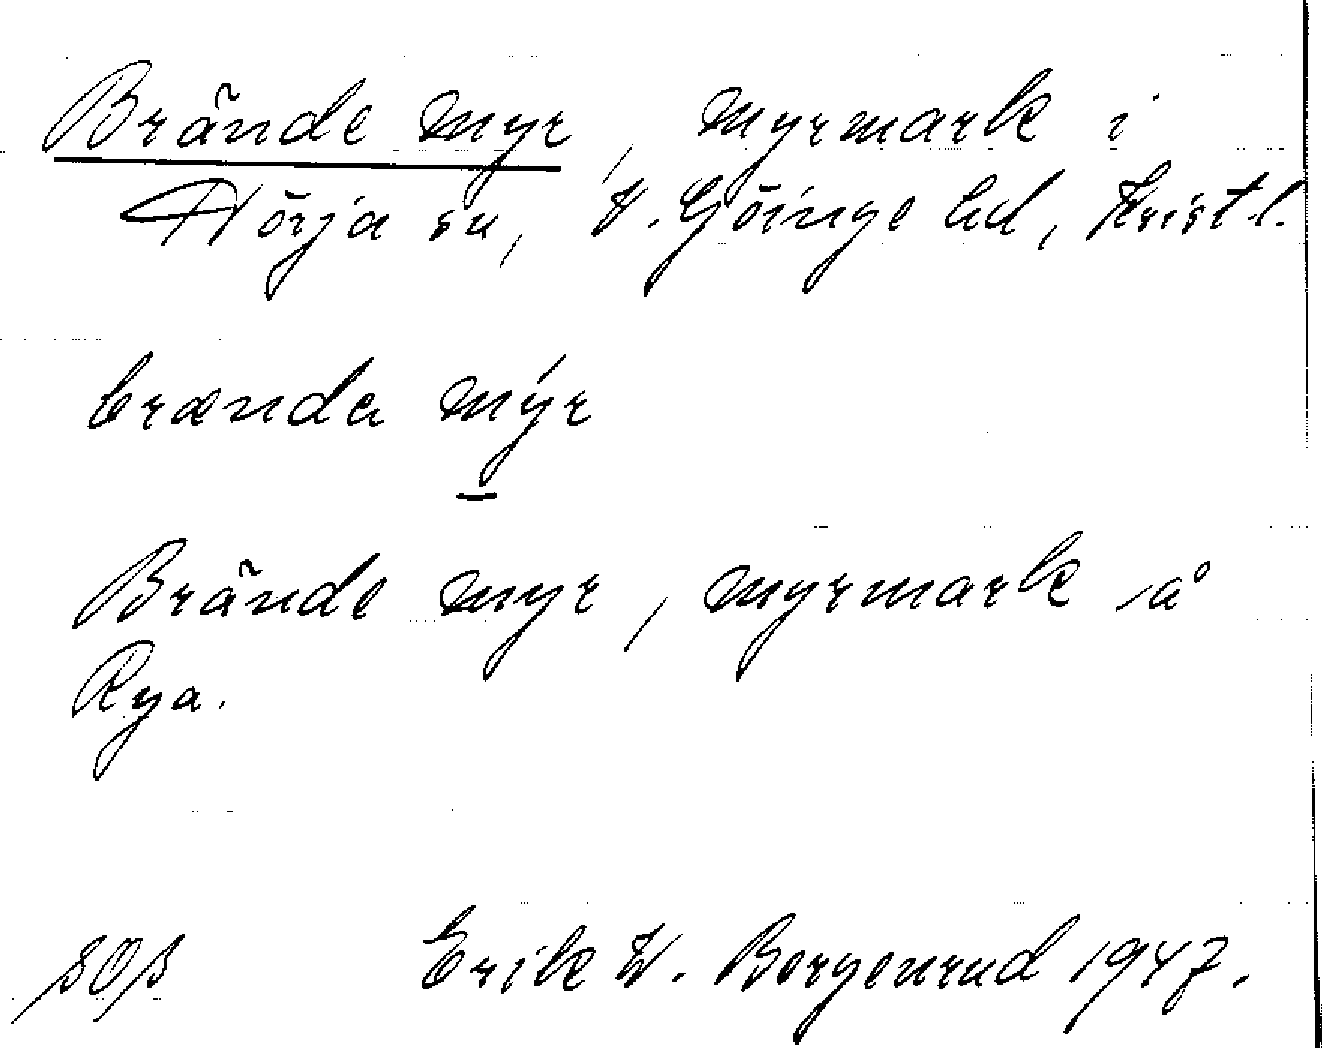 Brände myr, myrmark i
Hörja sn, V. Göinge hd, Krist l.
brænda mýr
Brände myr, myrmark å
Rya.
Erik W. Bergenrud 1947.